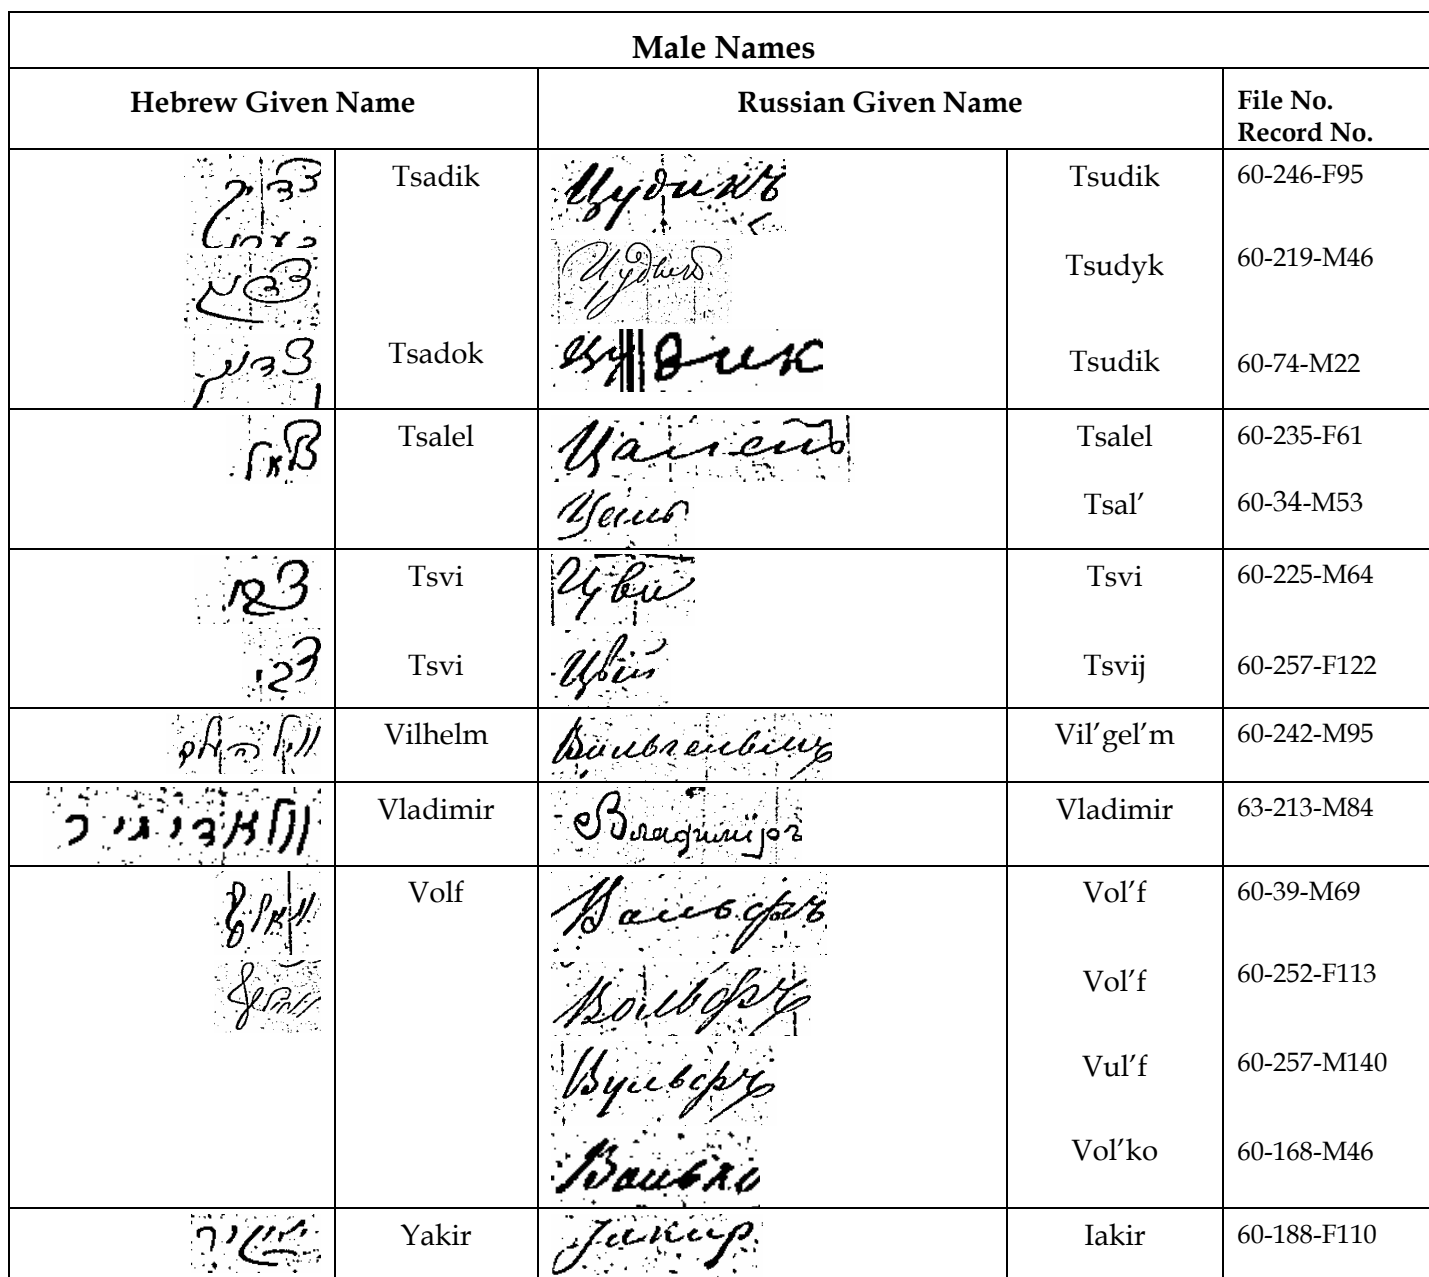 Male Names
Hebrew Given Name Russian Given Name File No. Record No.
צדיק Tsadik Цудикъ Tsudik 60-246-F95
צדיק Цудыкъ Tsudyk 60-219-M46
Tsadok Цудик Tsudik 60-74-M22
צלאל Tsalel Цалель Tsalel 60-235-F61
Цаль Tsal' 60-34-M53
צבי Tsvi Цви Tsvi 60-225-M64
צבי Tsvi Цвій Tsvij 60-257-F122
ווילהעלם Vilhelm Вильгельмъ Vil'gel'm 60-242-M95
וולאדימיר Vladimir Владимиръ Vladimir 63-213-M84
וואלף Volf Вольфъ Vol'f 60-39-M69
וואלף Вольфъ Vol'f 60-252-F113
Вульфъ Vul'f 60-257-M140
Волько Vol'ko 60-168-M46
Yakir Iakir 60-188-F110